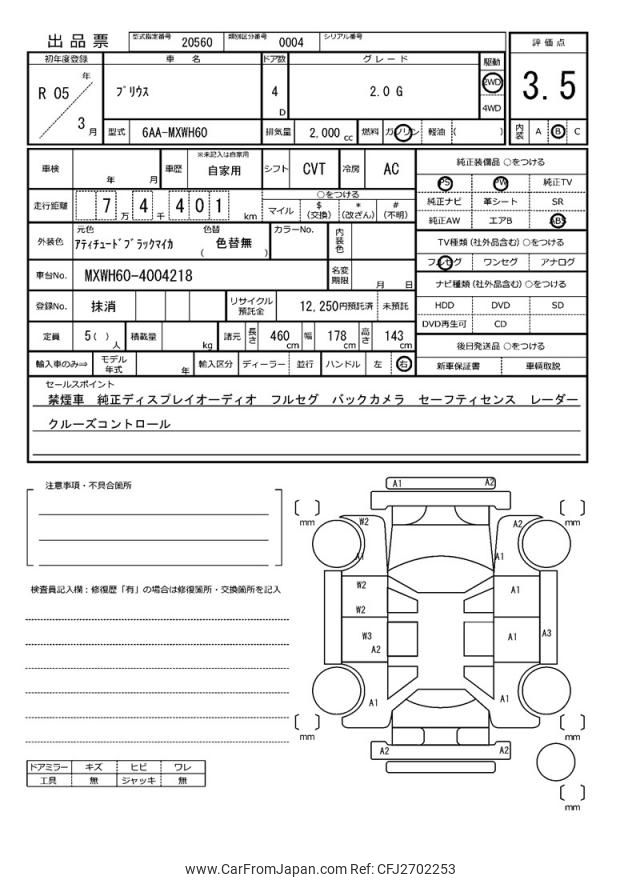 出品票 型式指定番号 20560 類別区分番号 0004 シリアル番号
評価点
3.5
初年度登録 車 名 ドア数 グレード 駆動
R 05 年 3 月
プリウス 4 D 2.0 G 2WD 4WD
型式 6AA-MXWH60 排気量 2,000 cc 燃料 ガソリン 軽油 ( )
内装 A B C
車検 年 月 車歴 ※未記入は自家用 自家用 シフト CVT 冷房 AC
走行距離 7 万 4 千 4 0 1 km
○をつける
マイル $(交換) *(改ざん) #(不明)
外装色 元色 アティチュードブラックマイカ 色替 ( 色替無 ) カラーNo. 内装色
車台No. MXWH60-4004218 名変期限 月 日
登録No. 抹消 リサイクル預託金 12,250円預託済 未預託
定員 5( )人 積載量 kg 諸元 長さ 460cm 幅 178cm 高さ 143cm
輸入車のみ⇨ モデル年式 年 輸入区分 ディーラー 並行 ハンドル 左 右
純正装備品 ○をつける
PS PW 純正TV
純正ナビ 革シート SR
純正AW エアB ABS
TV種類(社外品含む)○をつける
フルセグ ワンセグ アナログ
ナビ種類(社外品含む)○をつける
HDD DVD SD
DVD再生可 CD
後日発送品 ○をつける
新車保証書 車輌取説
セールスポイント
禁煙車 純正ディスプレイオーディオ フルセグ バックカメラ セーフティセンス レーダー
クルーズコントロール
注意事項・不具合箇所
検査員記入欄:修復歴「有」の場合は修復箇所・交換箇所を記入
A1 A2
mm mm
W2 A2
A1 A1
W2 A1
W2
W3 A1 A3
A2
A1 A1
mm mm
A2 A2
mm
ドアミラー キズ ヒビ ワレ
工具 無 ジャッキ 無
www.CarFromJapan.com Ref: CFJ2702253